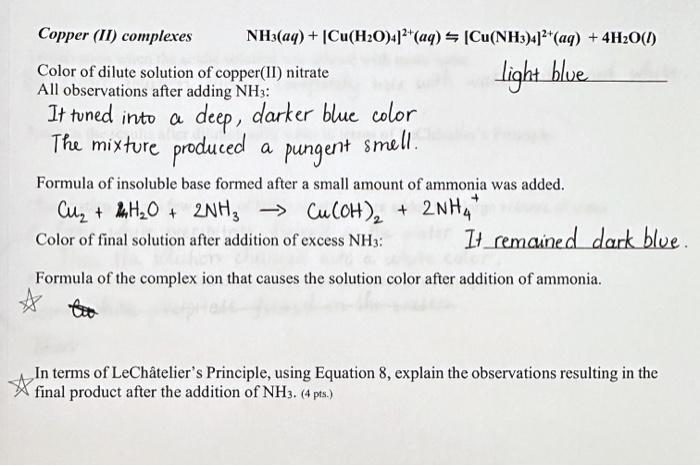 Copper (II) complexes NH₃(aq) + [Cu(H₂O)₄]²⁺(aq) ⇆ [Cu(NH₃)₄]²⁺(aq) + 4H₂O(l)
Color of dilute solution of copper(II) nitrate light blue
All observations after adding NH₃:
It tuned into a deep, darker blue color
The mixture produced a pungent smell.
Formula of insoluble base formed after a small amount of ammonia was added.
Cu₂ + H₂O + 2NH₃ → Cu(OH)₂ + 2NH₄⁺
Color of final solution after addition of excess NH₃: It remained dark blue.
Formula of the complex ion that causes the solution color after addition of ammonia.
In terms of LeChâtelier's Principle, using Equation 8, explain the observations resulting in the
final product after the addition of NH₃. (4 pts.)